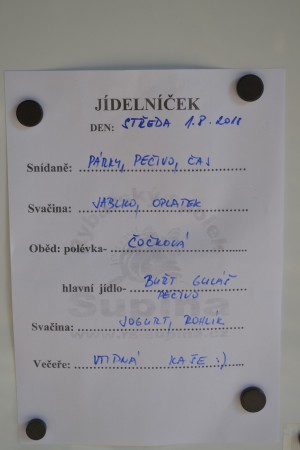 JÍDELNÍČEK
DEN: STŘEDA 1.8.2018
Snídaně: PÁRKY, PEČIVO, ČAJ
Svačina: JABLKO, OPLATEK
Oběd: polévka- ČOČKOVÁ
hlavní jídlo- BUŘT GULÁŠ
PEČIVO
Svačina: JOGURT, ROHLÍK
Večeře: VTIPNÁ KAŠE :)
Šupina